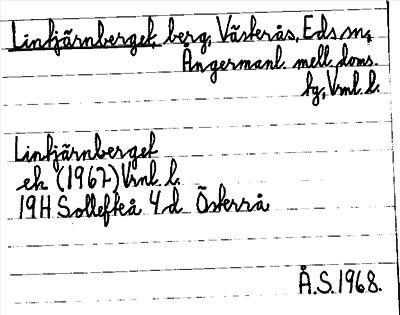 Lintjärnberget, berg, Västerås, Eds sn,
Ångermanl. mell. doms.
hg, Vrnl. l.
Lintjärnberget
ek (1967) Vrnl. l.
19H Sollefteå 4d Österrå
Å.S. 1968.